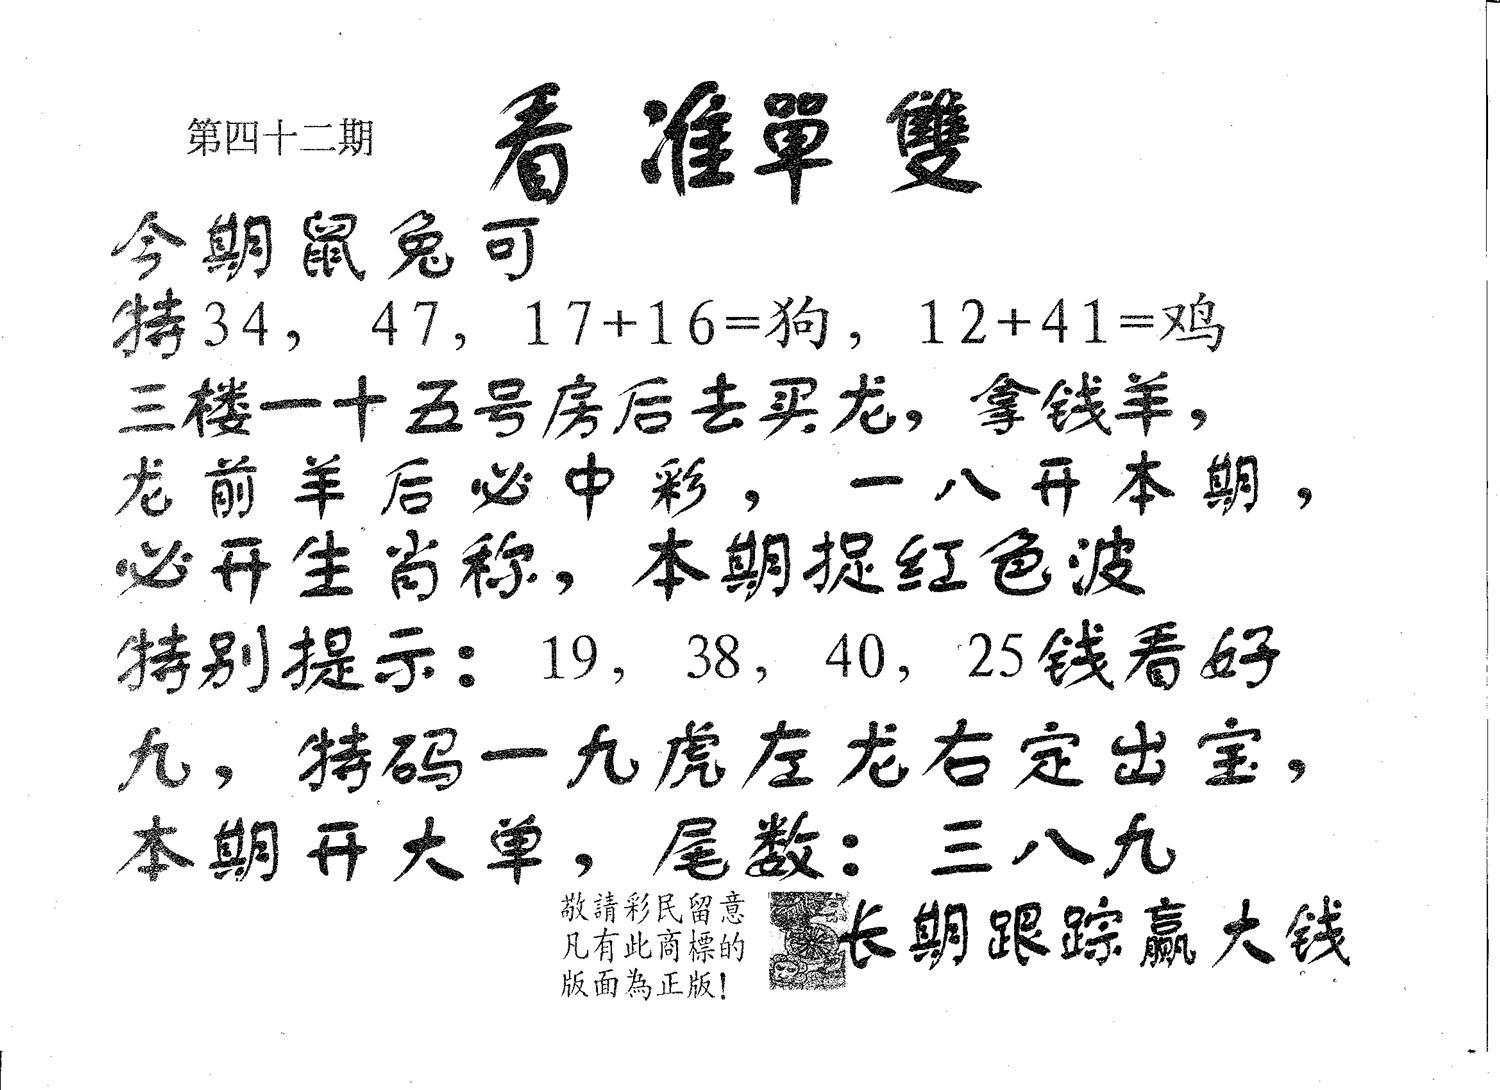 第四十二期
看准單雙
今期鼠兔可
特34，47，17+16=狗，12+41=鸡
三楼一十五号房后去买龙，拿钱羊，
龙前羊后必中彩，一八开本期，
必开生肖称，本期捉红色波
特别提示：19，38，40，25钱看好
九，特码一九虎左龙右定出宝，
本期开大单，尾数：三八九
敬請彩民留意
凡有此商標的
版面為正版！
长期跟踪赢大钱